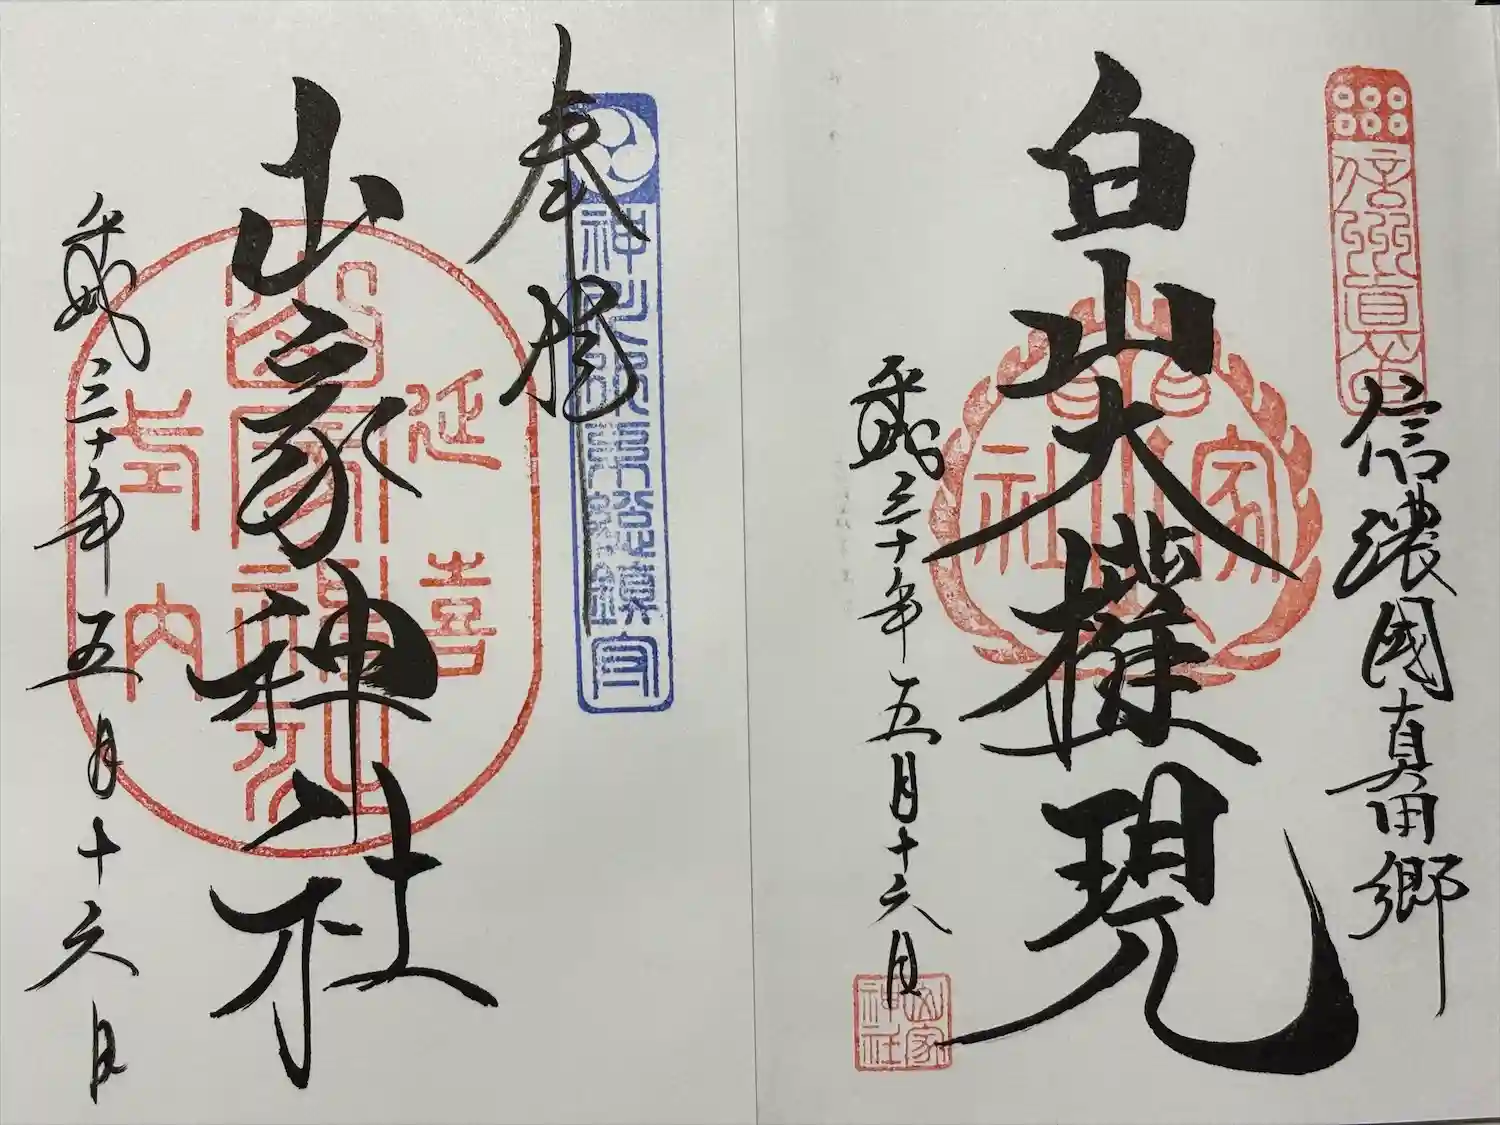 信州真田
信濃國真田郷
白山大権現
山家神社
平成三十年五月十六日
山家神社
神川水系惣鎮守
奉拝
延喜
山家神社
式内
山家神社
平成三十年五月十六日